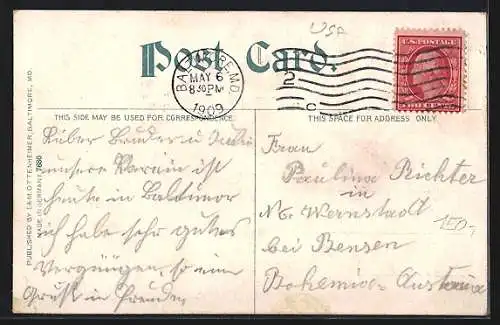 USA
Post Card.
BALTIMORE, MD.
MAY 6
8 30 PM
1909
2
U.S. POSTAGE
TWO CENTS
THIS SIDE MAY BE USED FOR CORRESPONDENCE.
THIS SPACE FOR ADDRESS ONLY
PUBLISHED BY I.& M. OTTENHEIMER, BALTIMORE, MD.
MADE IN GERMANY 7680
Lieber Bruder u
unsere Verein ist
heute in Baltimor
ich habe sehr gutes
Vergnügen, so ein
Gruß in Freuden
Frau
Paulina Richter
in
Wernstadt
bei Bensen
Bohemia-Austria
150,-